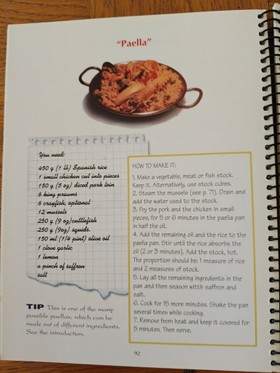 "Paella"
You need:
450 g (1 lb) Spanish rice
1 small chicken cut into pieces
150 g (5 oz) diced pork loin
8 king prawns
6 crayfish, optional
12 mussels
250 g (9 oz) cuttlefish
250 g (9oz) squids
150 ml (1/4 pint) olive oil
1 clove garlic
1 lemon
a pinch of saffron
salt
TIP This is one of the many
possible paellas, which can be
made out of different ingredients.
See the introduction.
HOW TO MAKE IT:
1. Make a vegetable, meat or fish stock.
Keep it. Alternatively, use stock cubes.
2. Steam the mussels (see p. 71). Drain and
add the water used to the stock.
3. Fry the pork and the chicken in small
pieces, for 5 or 6 minutes in the paella pan
in half the oil.
4. Add the remaining oil and the rice to the
paella pan. Stir until the rice absorbs the
oil (2 or 3 minutes). Add the stock, hot.
The proportion should be 1 measure of rice
and 2 measures of stock.
5. Lay all the remaining ingredients in the
pan and then season with saffron and
salt.
6. Cook for 15 more minutes. Shake the pan
several times while cooking.
7. Remove from heat and keep it covered for
5 minutes. Then serve.
92